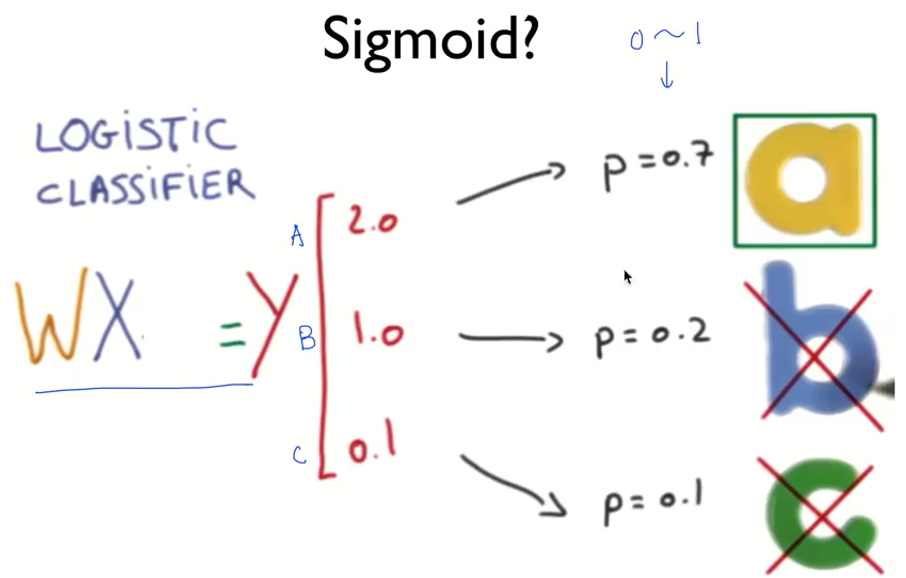 Sigmoid?
0 ~ 1
↓
LOGISTIC
CLASSIFIER
WX = Y
A 2.0 → p = 0.7 a
B 1.0 → p = 0.2 b
C 0.1 → p = 0.1 c